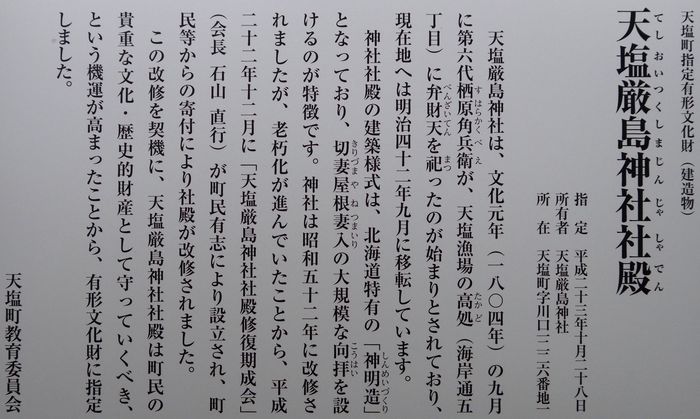 天塩町指定有形文化財（建造物）
天塩厳島神社社殿
てしおいつくしまじんじゃしゃでん
指定　平成二十三年十月二十八日
所有者　天塩厳島神社
所在　天塩町字川口一二二六番地一
天塩厳島神社は、文化元年（一八〇四年）の九月
に第六代栖原角兵衛が、天塩漁場の高処（海岸通五
すはらかくべえ
たかど
丁目）に弁財天を祀ったのが始まりとされており、
べんざいてん
まつ
現在地へは明治四十二年九月に移転しています。
神社社殿の建築様式は、北海道特有の「神明造」
しんめいづくり
となっており、切妻屋根妻入の大規模な向拝を設
きりづまやねつまいり
こうはい
けるのが特徴です。神社は昭和五十二年に改修さ
れましたが、老朽化が進んでいたことから、平成
二十二年十二月に「天塩厳島神社社殿修復期成会」
（会長 石山 直行）が町民有志により設立され、町
民等からの寄付により社殿が改修されました。
この改修を契機に、天塩厳島神社社殿は町民の
貴重な文化・歴史的財産として守っていくべき、
という機運が高まったことから、有形文化財に指定
しました。
天塩町教育委員会